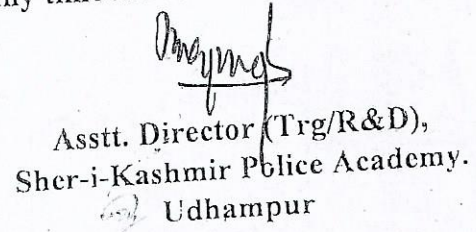 Asstt. Director (Trg/R&D),
Sher-i-Kashmir Police Academy.
Udhampur